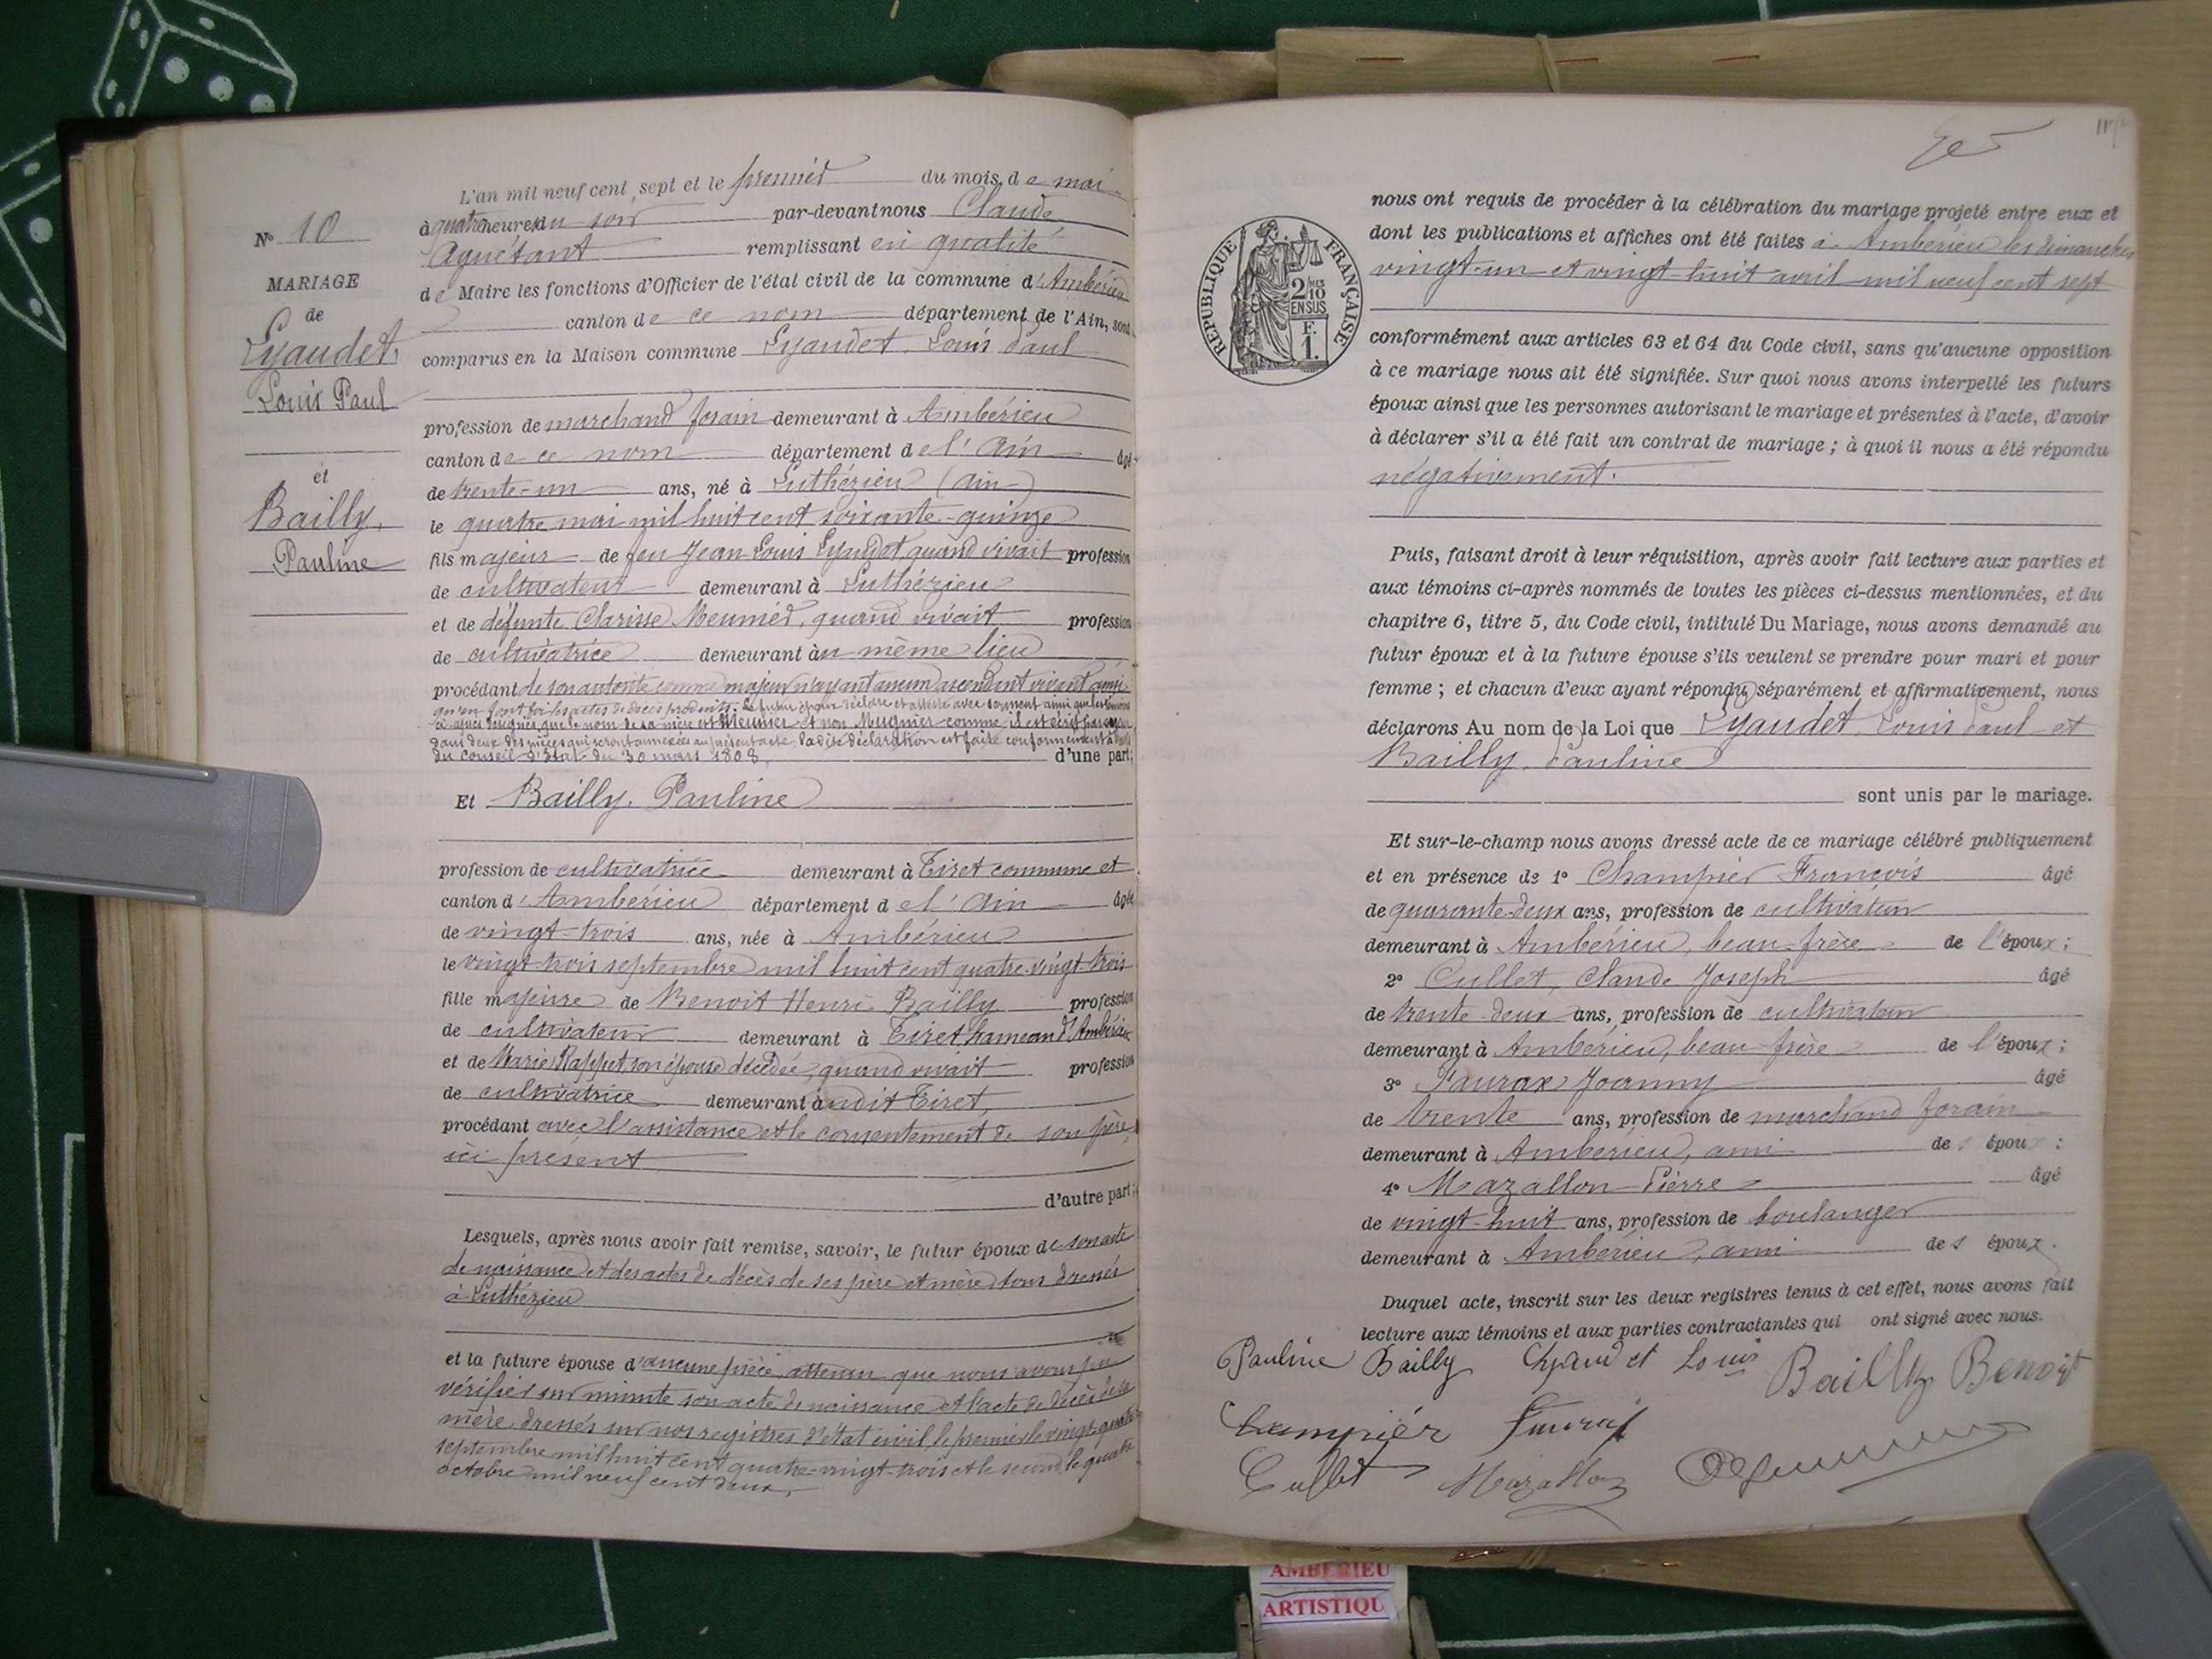 N° 10
MARIAGE
de
Lyaudet,
Louis Paul
et
Bailly,
Pauline
L'an mil neuf cent sept et le premier du mois de mai
à quatre heures du soir par-devant nous Claude
Aguétant remplissant en qualité
de Maire les fonctions d'Officier de l'état civil de la commune d'Ambérieu
canton de ce nom département de l'Ain, sont
comparus en la Maison commune Lyaudet Louis Paul
profession de marchand forain demeurant à Ambérieu
canton de ce nom département de l'Ain âgé
de trente-un ans, né à Luthézieu (Ain)
le quatre mai mil huit cent soixante-quinze
fils majeur de feu Jean Louis Lyaudet quand vivait profession
de cultivateur demeurant à Luthézieu
et de défunte Clarisse Meunier, quand vivait profession
de cultivatrice demeurant au même lieu
procédant de son autorité comme majeur n'ayant aucun ascendant vivant ainsi
qu'en font foi les actes de décès produits. Le futur époux déclare et atteste avec serment ainsi que les témoins
ci-après désignés, que le nom de sa mère est Meunier et non Mugnier comme il est écrit par erreur
dans deux des pièces qui seront annexées au présent acte. La dite déclaration est faite conformément à l'avis
du Conseil d'Etat du 30 mars 1808. d'une part;
Et Bailly, Pauline
profession de cultivatrice demeurant à Tiret commune et
canton d'Ambérieu département de l'Ain âgée
de vingt-trois ans, née à Ambérieu
le vingt-trois septembre mil huit cent quatre-vingt-trois
fille majeure de Benoit Henri Bailly profession
de cultivateur demeurant à Tiret, hameau d'Ambérieu
et de Marie Rappet son épouse décédée, quand vivait profession
de cultivatrice demeurant audit Tiret,
procédant avec l'assistance et le consentement de son père,
ici présent
d'autre part;
Lesquels, après nous avoir fait remise, savoir, le futur époux de son acte
de naissance et des actes de décès de ses père et mère tous dressés
à Luthézieu
et la future épouse d'aucune pièce, attendu que nous avons pu
vérifier sur minute son acte de naissance et l'acte de décès de sa
mère dressés sur nos registres d'état civil, le premier le vingt-quatre
septembre mil huit cent quatre-vingt-trois et le second, le quatre
octobre mil neuf cent deux,
nous ont requis de procéder à la célébration du mariage projeté entre eux et
dont les publications et affiches ont été faites à Ambérieu les dimanches
vingt-un et vingt-huit avril mil neuf cent sept
RÉPUBLIQUE FRANÇAISE
2/10
EN SUS
F.
1.
conformément aux articles 63 et 64 du Code civil, sans qu'aucune opposition
à ce mariage nous ait été signifiée. Sur quoi nous avons interpellé les futurs
époux ainsi que les personnes autorisant le mariage et présentes à l'acte, d'avoir
à déclarer s'il a été fait un contrat de mariage ; à quoi il nous a été répondu
négativement.
Puis, faisant droit à leur réquisition, après avoir fait lecture aux parties et
aux témoins ci-après nommés de toutes les pièces ci-dessus mentionnées, et du
chapitre 6, titre 5, du Code civil, intitulé Du Mariage, nous avons demandé au
futur époux et à la future épouse s'ils veulent se prendre pour mari et pour
femme ; et chacun d'eux ayant répondu séparément et affirmativement, nous
déclarons Au nom de la Loi que Lyaudet, Louis Paul et
Bailly, Pauline
sont unis par le mariage.
Et sur-le-champ nous avons dressé acte de ce mariage célébré publiquement
et en présence de 1° Champier François âgé
de quarante-deux ans, profession de cultivateur
demeurant à Ambérieu, beau-frère de l'époux ;
2° Cullet, Claude Joseph âgé
de trente-deux ans, profession de cultivateur
demeurant à Ambérieu, beau-frère de l'époux ;
3° Faurax Joanny âgé
de trente ans, profession de marchand forain
demeurant à Ambérieu, ami des époux :
4° Mazallon Pierre âgé
de vingt-huit ans, profession de boulanger
demeurant à Ambérieu, ami des époux.
Duquel acte, inscrit sur les deux registres tenus à cet effet, nous avons fait
lecture aux témoins et aux parties contractantes qui ont signé avec nous.
Pauline Bailly Lyaudet Louis Bailly Benoit
Champier Faurax
Cullet Mazallon
AMBERIEU
ARTISTIQU